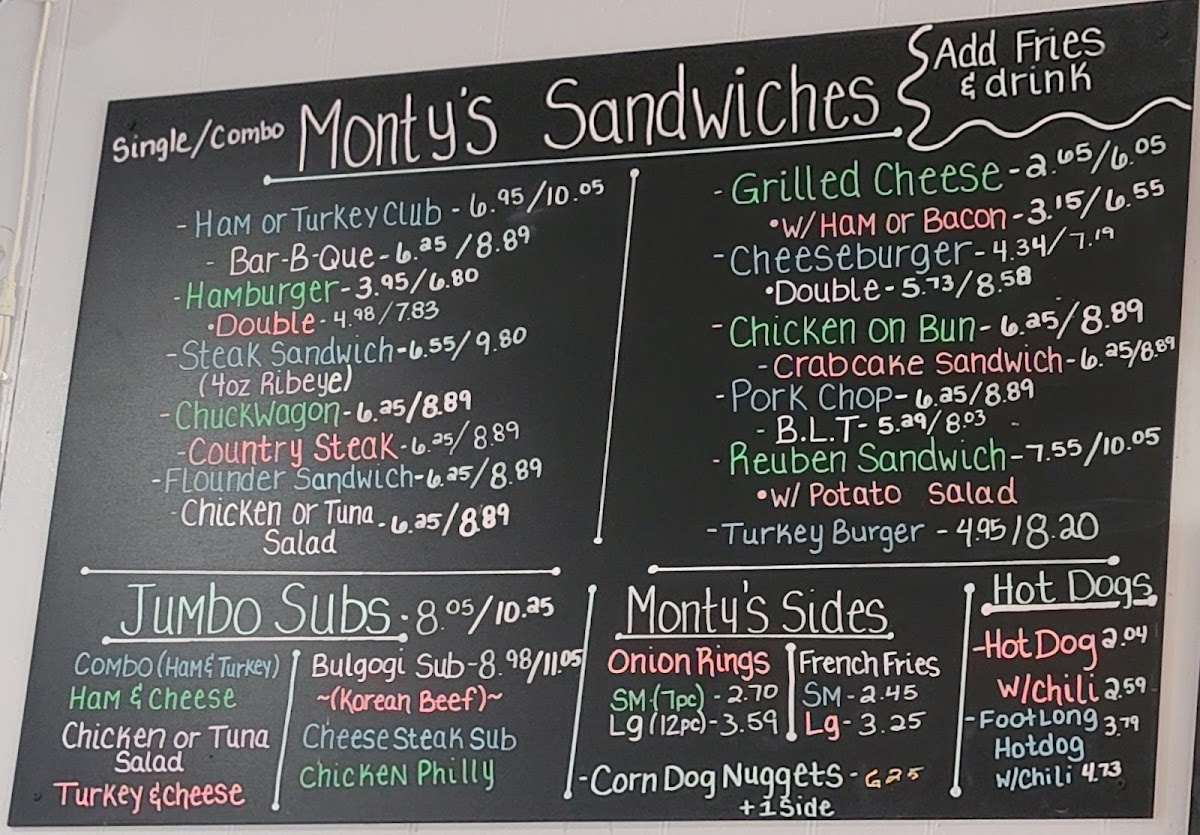 Single/Combo Monty's Sandwiches
Add Fries
& drink
- Ham or Turkey Club - 6.95/10.05
- Bar-B-Que - 6.25/8.89
- Hamburger - 3.95/6.80
• Double - 4.98/7.83
- Steak Sandwich - 6.55/9.80
(4oz Ribeye)
- Chuckwagon - 6.25/8.89
- Country Steak - 6.25/8.89
- Flounder Sandwich - 6.25/8.89
- Chicken or Tuna - 6.25/8.89
Salad
- Grilled Cheese - 2.65/6.05
• W/ Ham or Bacon - 3.15/6.55
- Cheeseburger - 4.34/7.19
• Double - 5.73/8.58
- Chicken on Bun - 6.25/8.89
- Crabcake Sandwich - 6.25/8.89
- Pork Chop - 6.25/8.89
- B.L.T - 5.29/8.03
- Reuben Sandwich - 7.55/10.05
• W/ Potato Salad
- Turkey Burger - 4.95/8.20
Jumbo Subs - 8.05/10.25
Combo (Ham & Turkey)
Ham & Cheese
Chicken or Tuna
Salad
Turkey & cheese
Bulgogi Sub - 8.98/11.05
~(Korean Beef)~
Cheese Steak Sub
Chicken Philly
Monty's Sides
Onion Rings
SM (7pc) - 2.70
Lg (12pc) - 3.59
French Fries
SM - 2.45
Lg - 3.25
- Corn Dog Nuggets - 6.25
+ 1 Side
Hot Dogs
- Hot Dog 2.04
W/Chili 2.59
- Foot Long 3.79
Hotdog
W/Chili 4.73